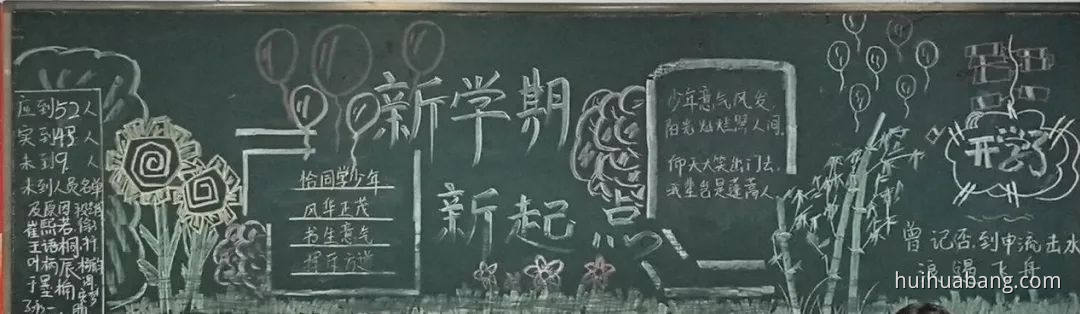 应到52人
实到43人
未到9人
未到人员名单
及原因
新学期
新起点
恰同学少年
风华正茂
书生意气
挥斥方遒
少年意气风发,
阳光灿烂照人间,
仰天大笑出门去,
我辈岂是蓬蒿人
开学了
曾记否,到中流击水
浪遏飞舟
huihuabang.com